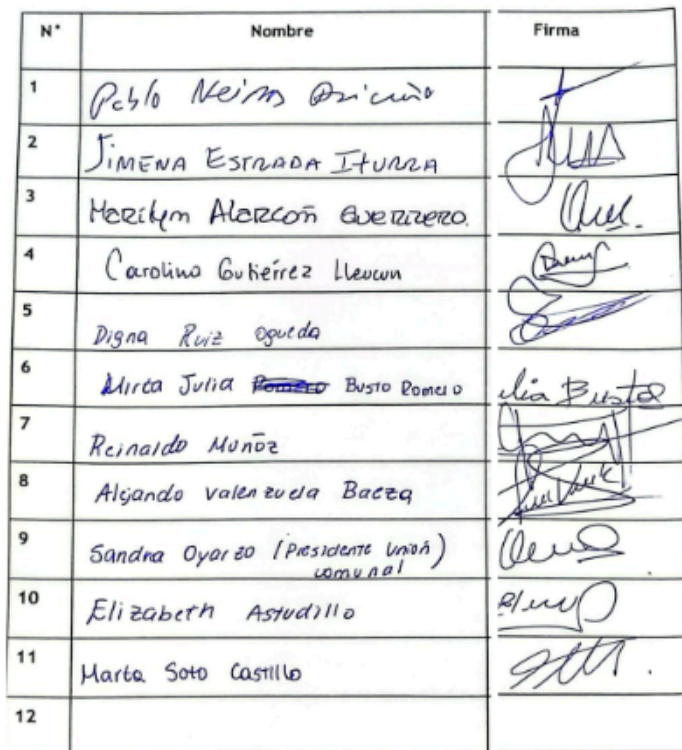 N° Nombre Firma
1 Pablo Neira
2 Jimena Estrada Iturra
3 Marilyn Alarcón Guerrero.
4 Carolina Gutiérrez Lleucun
5 Digna Ruiz Ogueda
6 Mirta Julia Romero Busto Romero lia Busto
7 Reinaldo Muñoz
8 Alejando Valenzuela Baeza
9 Sandra Oyarzo (Presidente Unión
comunal)
10 Elizabeth Astudillo
11 Marta Soto Castillo
12